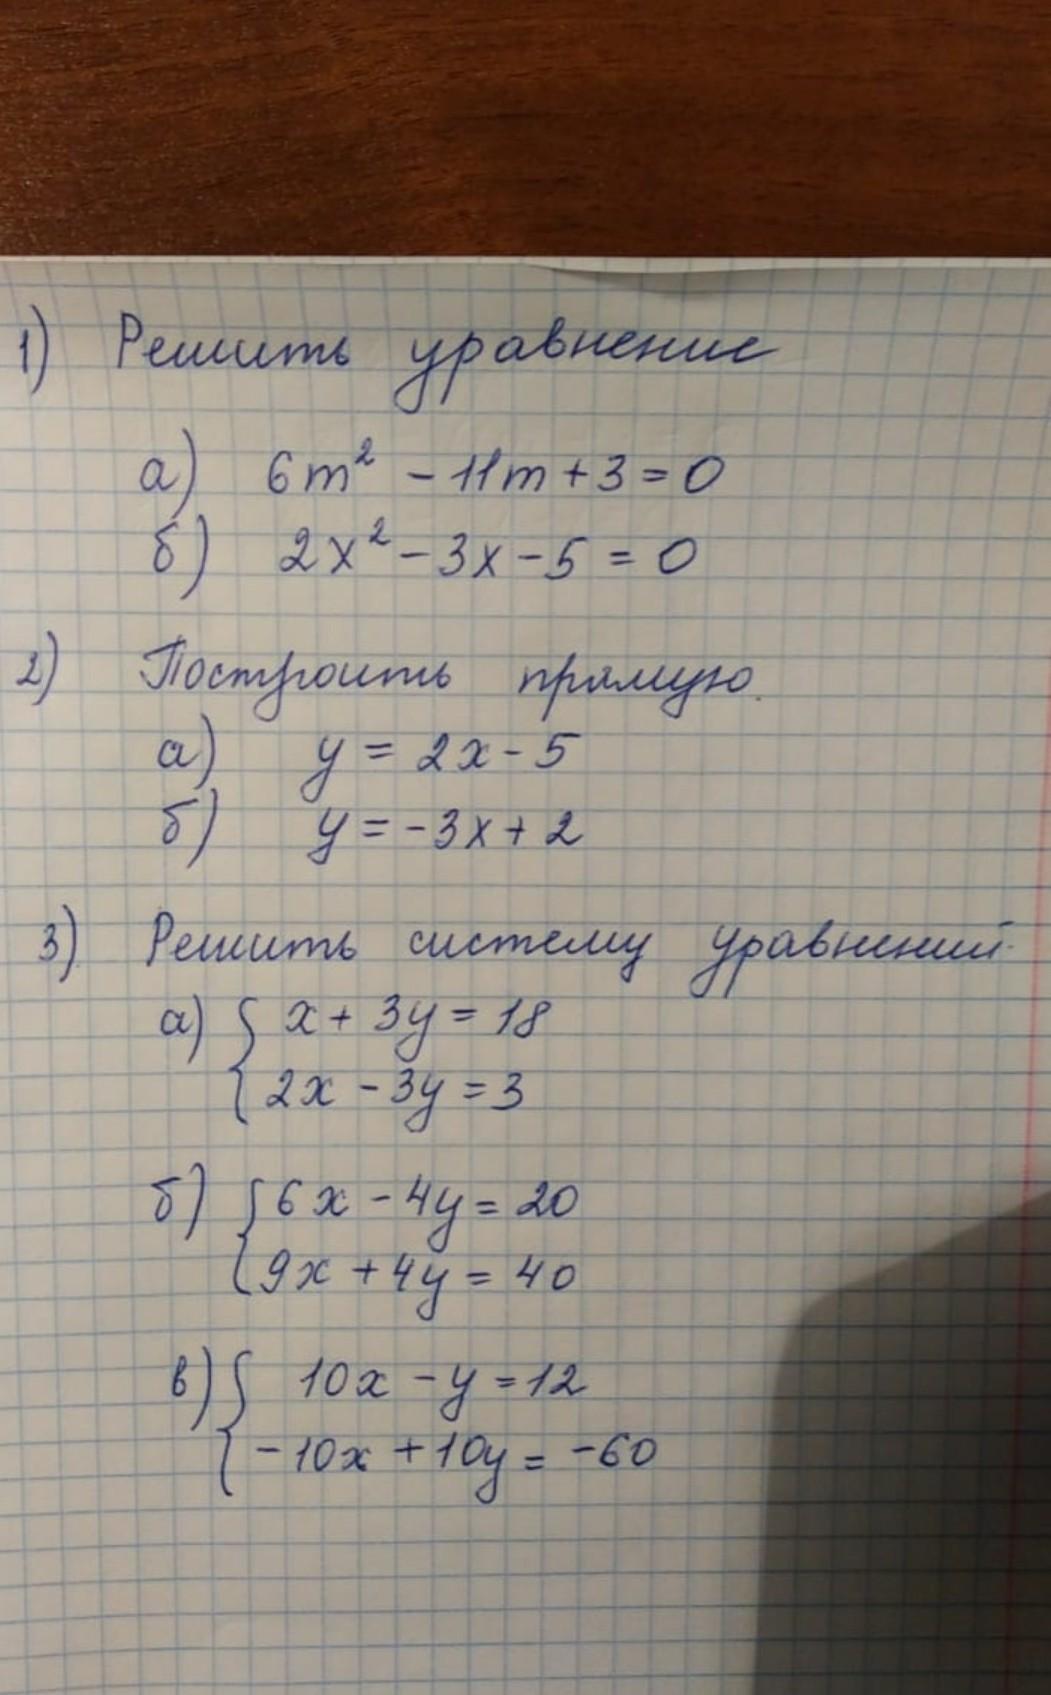 1) Решить уравнение
а) 6m² - 11m + 3 = 0
б) 2x² - 3x - 5 = 0
2) Построить прямую.
а) y = 2x - 5
б) y = -3x + 2
3) Решить систему уравнений.
а) { x + 3y = 18
2x - 3y = 3
б) { 6x - 4y = 20
9x + 4y = 40
в) { 10x - y = 12
-10x + 10y = -60